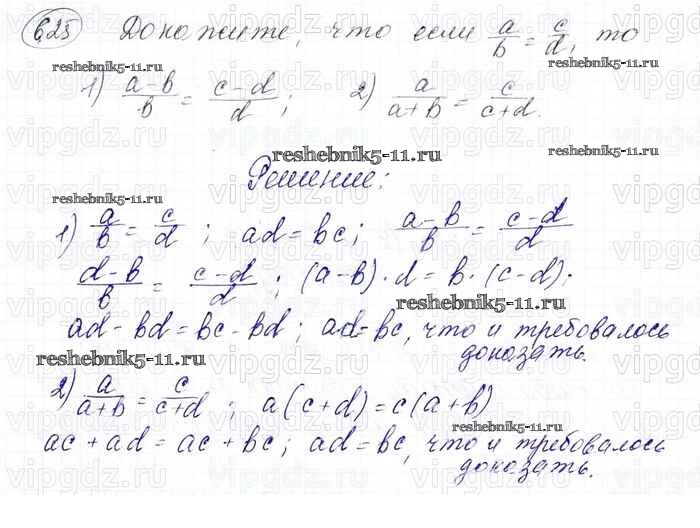 625 Докажите, что если a/b = c/d, то
reshebnik5-11.ru reshebnik5-11.ru
1) (a-b)/b = (c-d)/d; 2) a/(a+b) = c/(c+d).
reshebnik5-11.ru reshebnik5-11.ru
Решение:
reshebnik5-11.ru
1) a/b = c/d; ad = bc; (a-b)/b = (c-d)/d
(d-b)/b = (c-d)/d; (a-b)·d = b·(c-d);
reshebnik5-11.ru
ad - bd = bc - bd; ad = bc, что и требовалось
доказать.
reshebnik5-11.ru
2) a/(a+b) = c/(c+d); a(c+d) = c(a+b)
reshebnik5-11.ru
ac + ad = ac + bc; ad = bc, что и требовалось
доказать.
vipgdz.ru